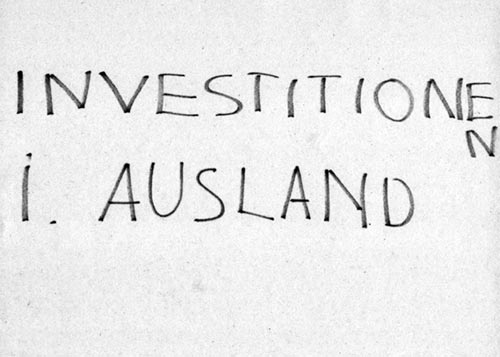 INVESTITIONEN
i. AUSLAND